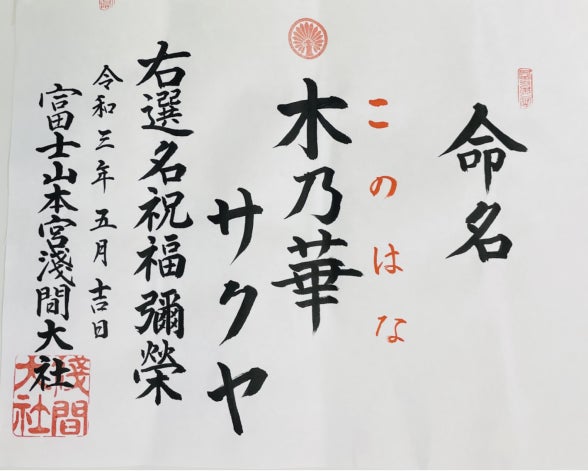 命名
このはな
木乃華
サクヤ
右選名祝福彌榮
令和三年五月吉日
富士山本宮淺間大社
淺間
大社